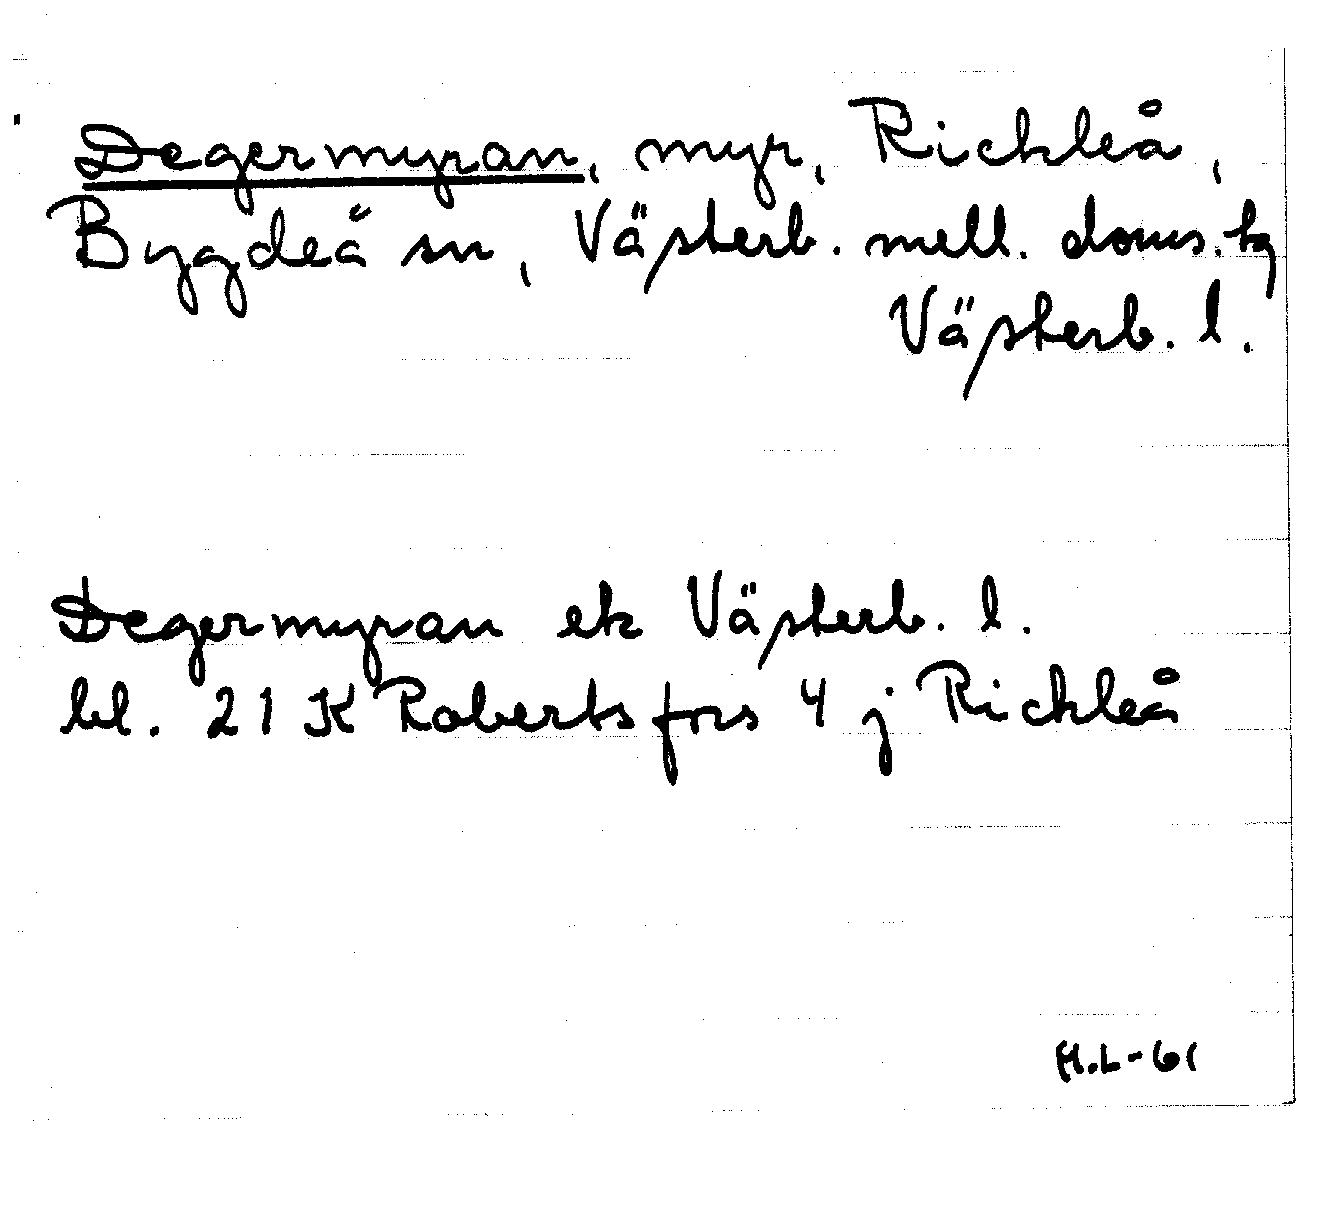 Degermyran, myr, Rickleå,
Bygdeå sn, Västerb. mell. doms. tg
Västerb. l.
Degermyran ek Västerb. l.
bl. 21 K Robertsfors 4 j Rickleå
H.L-61